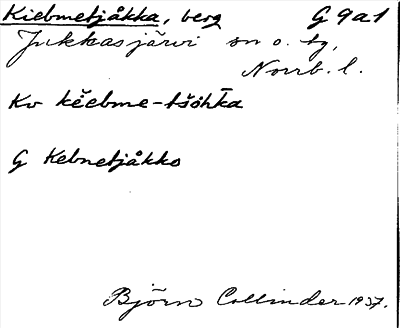 Kiebmetjåkka, berg G 9a1
Jukkasjärvi sn o. tg,
Norrb. l.
Kv kĕebme-tšŏhk̄a
G Kebnetjåkko
Björn Collinder 1937.